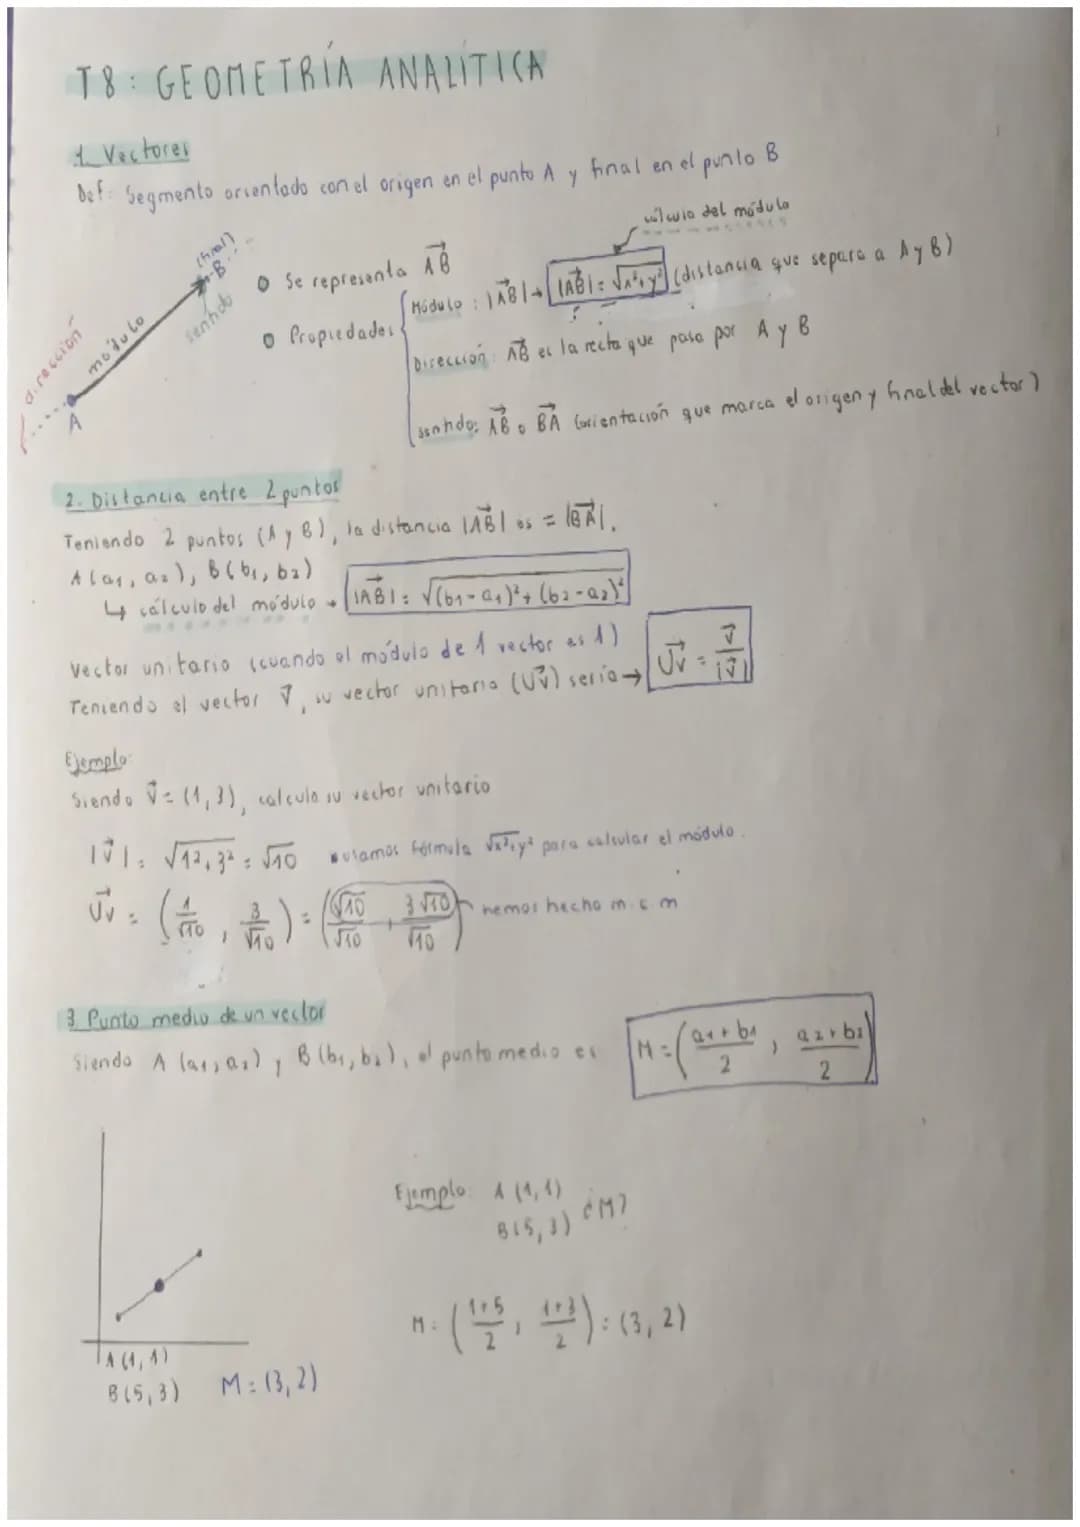 T8: GEOMETRÍA ANALÍTICA
1. Vectores
Def: Segmento orientado con el origen en el punto A y final en el punto B
cálculo del módulo
(final)
B
sentido
módulo
dirección
A
Se representa AB
Propiedades
Módulo: |AB| → |AB| = √x²+y² (distancia que separa a A y B)
Dirección: AB es la recta que pasa por A y B
sentido: AB o BA (orientación que marca el origen y final del vector)
2. Distancia entre 2 puntos
Teniendo 2 puntos (A y B), la distancia |AB| es = |BA|.
A(a1, a2), B(b1, b2)
↳ cálculo del módulo → |AB| = √(b1-a1)²+(b2-a2)²
Vector unitario (cuando el módulo de 1 vector es 1)
Teniendo el vector V, su vector unitario (Uv) sería → Uv = v/|v|
Ejemplo:
Siendo V = (1,3), calcula su vector unitario
|V| = √1²+3² = √10 usamos fórmula √x²+y² para calcular el módulo.
Uv = (1/√10, 3/√10) = (√10/√10, 3√10/√10) hemos hecho m.c.m
3. Punto medio de un vector
Siendo A (a1, a2) y B (b1, b2), el punto medio es M = (a1+b1/2, a2+b2/2)
Ejemplo: A (1,1)
B(5,3) ¿M?
M = (1+5/2, 1+3/2) = (3,2)
A (1,1)
B(5,3) M = (3,2)